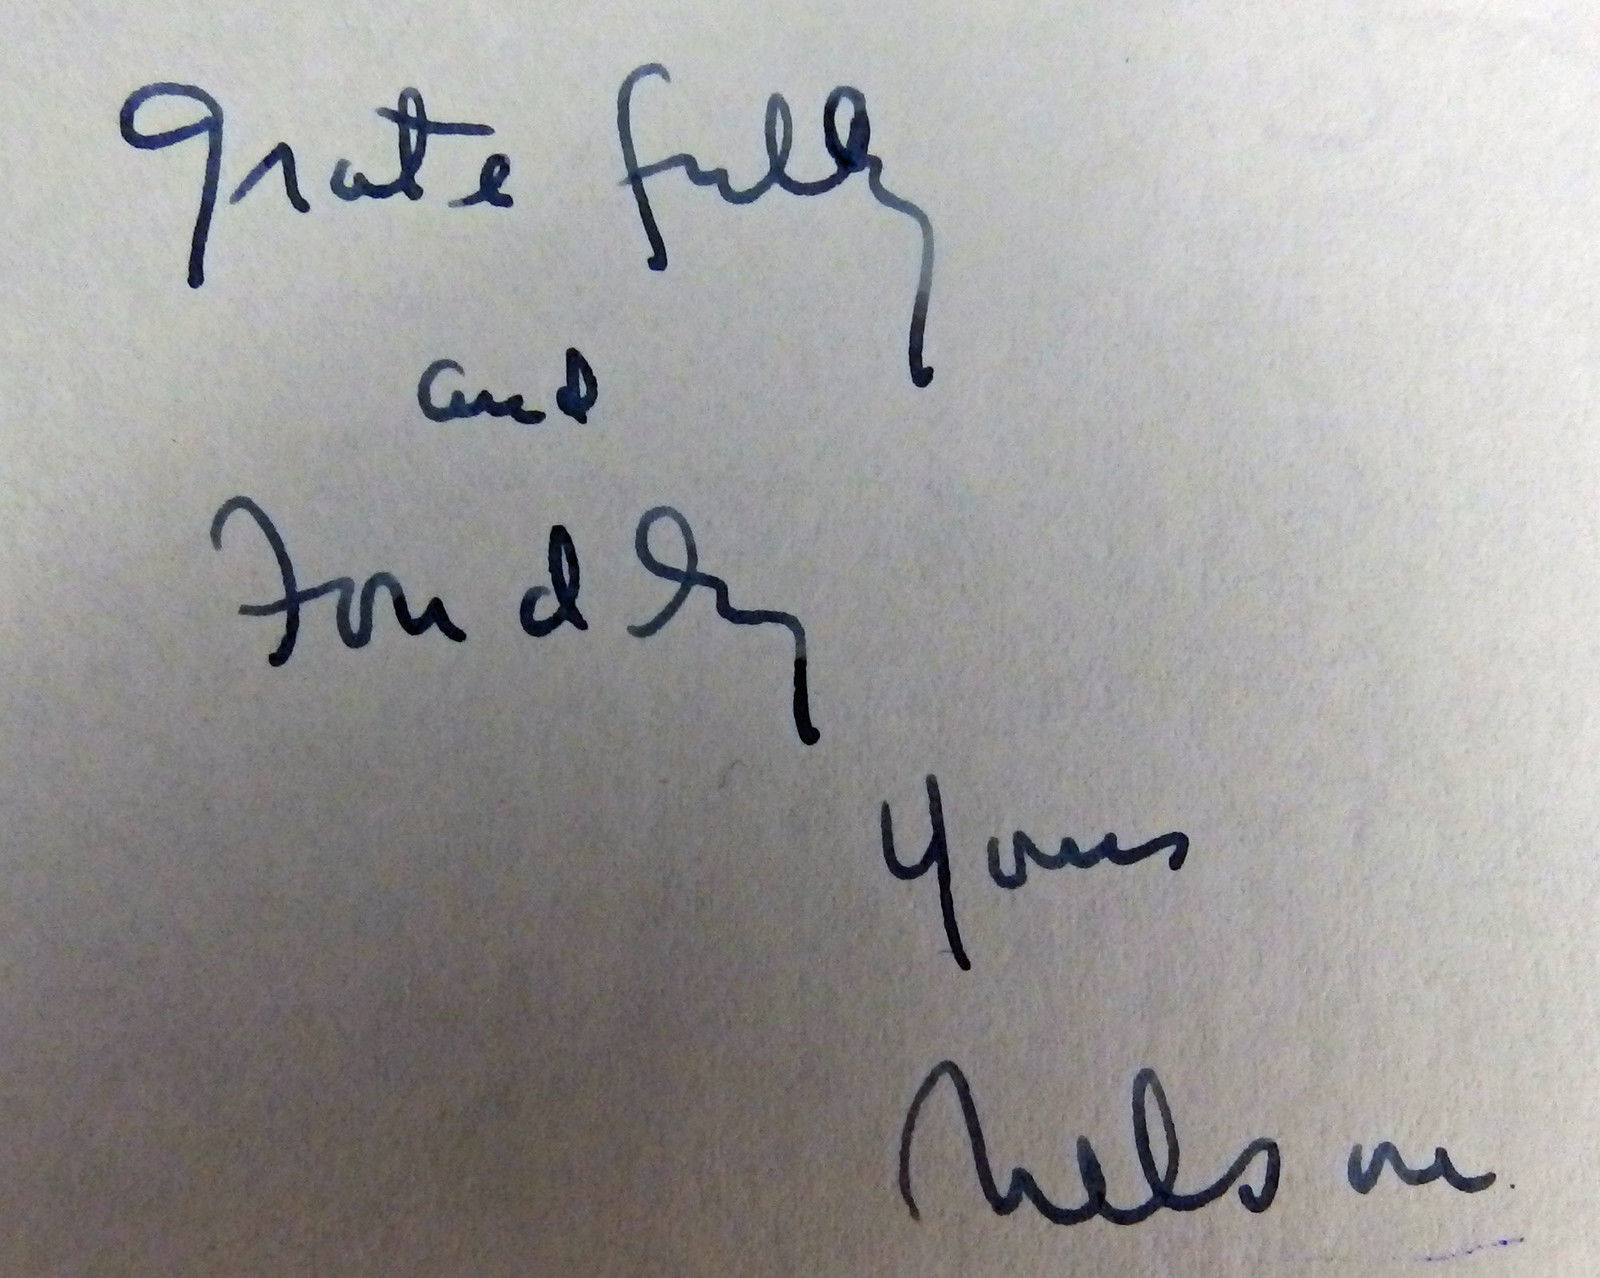 Gratefully
and
Fondly
Yours
Nelson